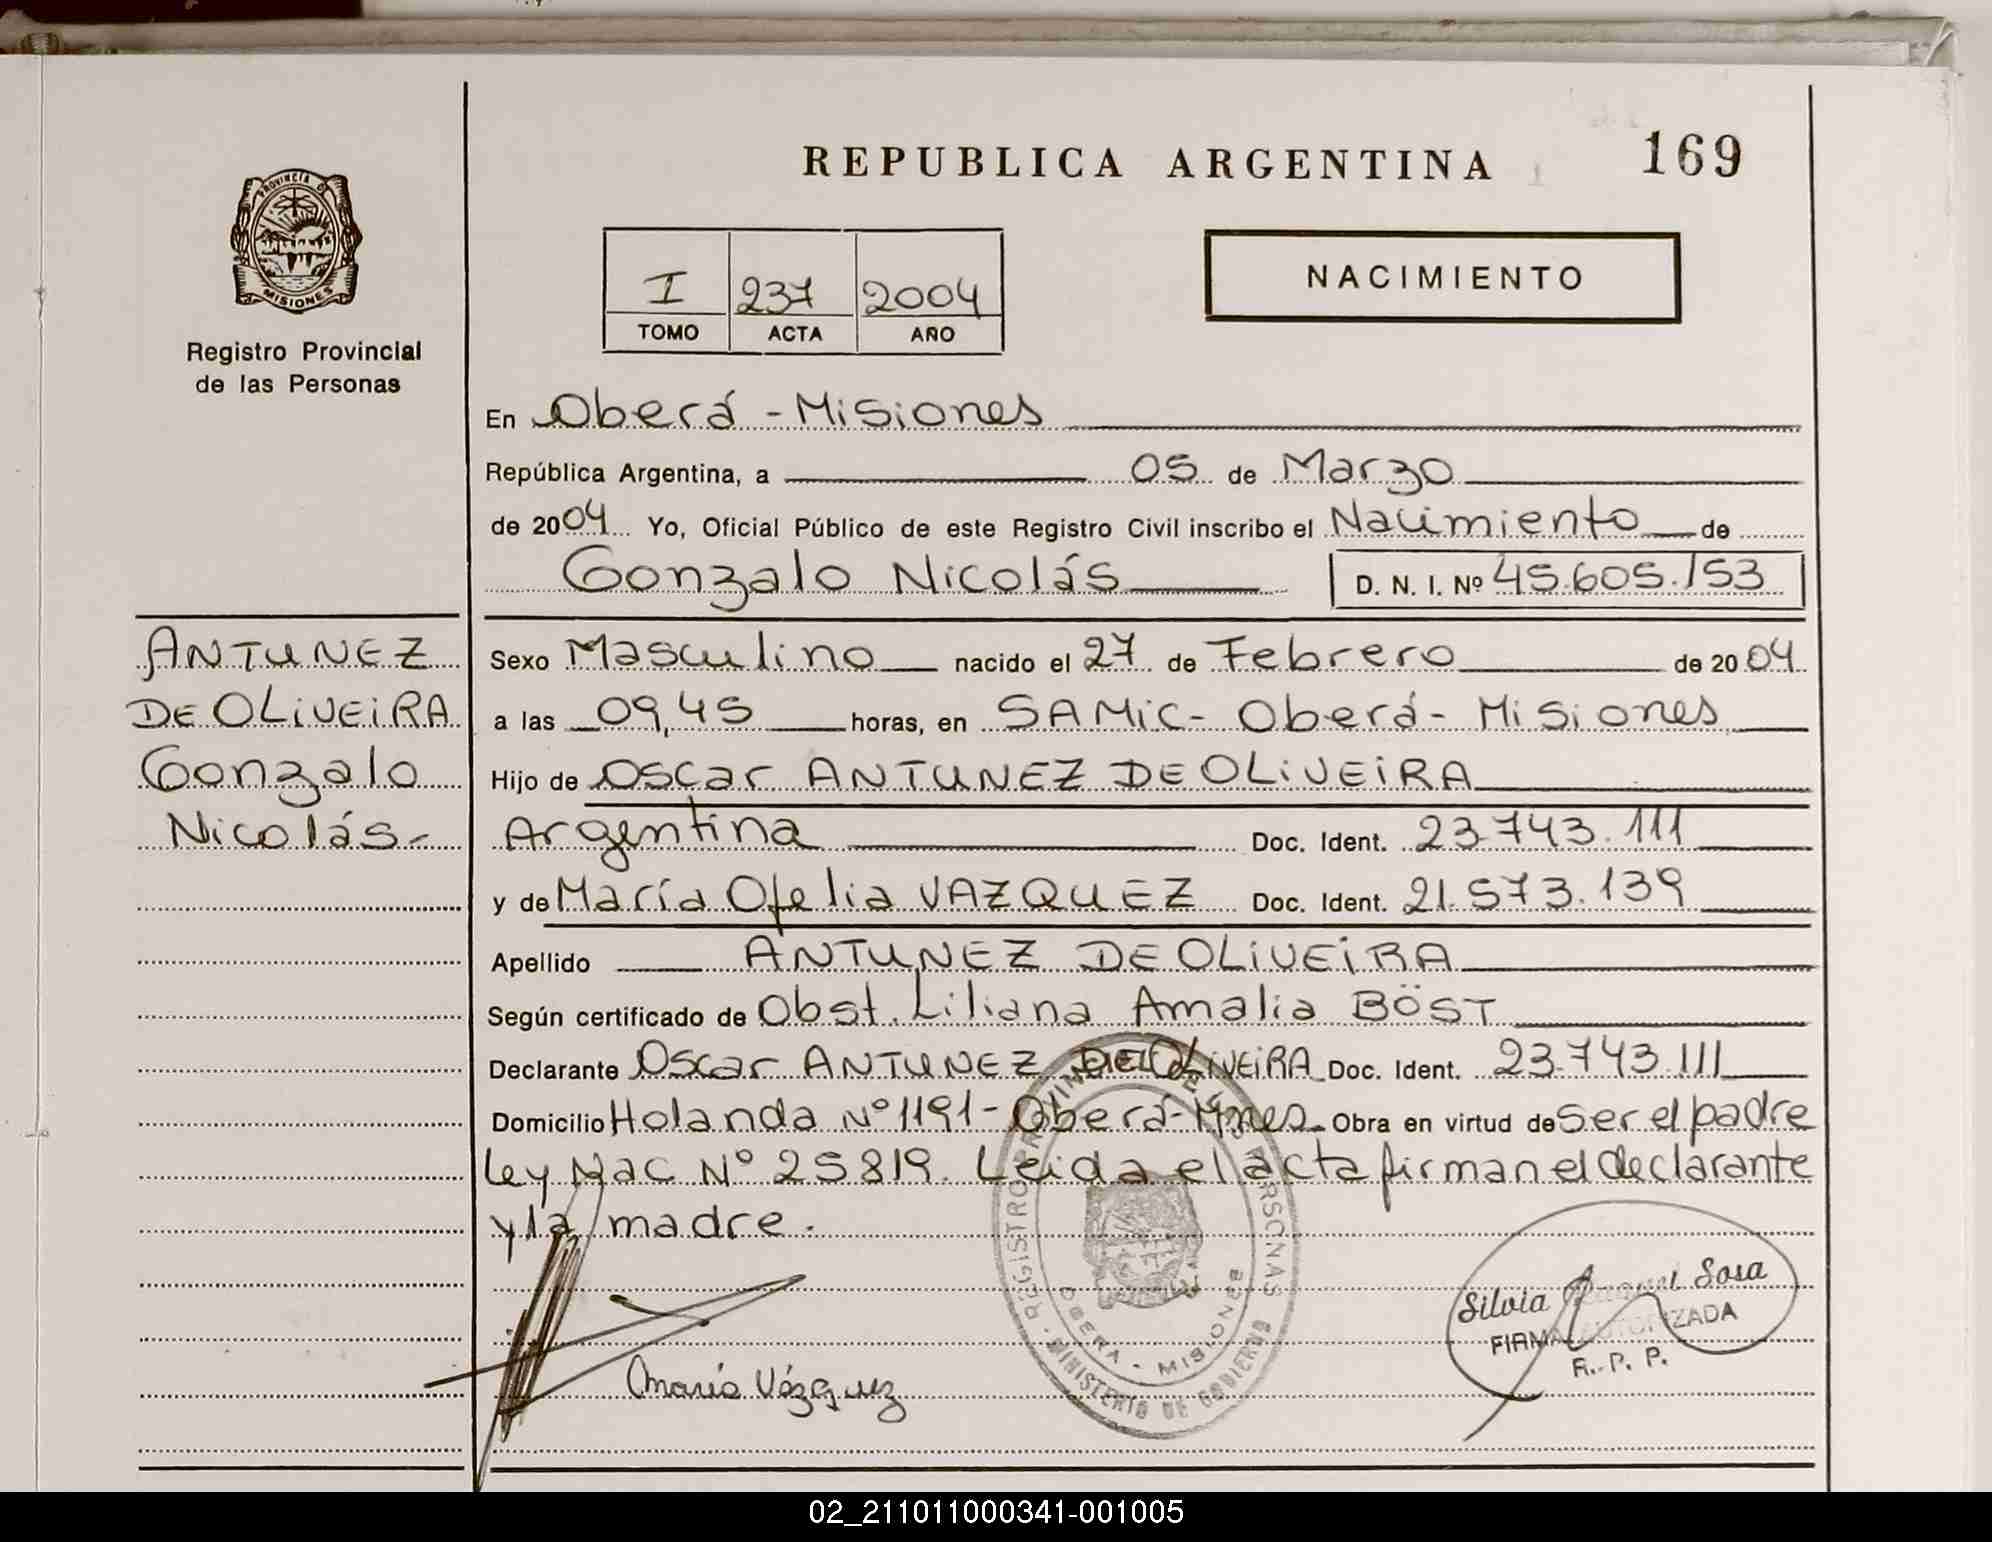 REPUBLICA ARGENTINA
169
PROVINCIA DE
MISIONES
Registro Provincial
de las Personas
I 237 2004
TOMO ACTA AÑO
NACIMIENTO
En Oberá - Misiones
República Argentina, a 05 de Marzo
de 2004 Yo, Oficial Público de este Registro Civil inscribo el Nacimiento de
Gonzalo Nicolás D. N. I. Nº 45.605.153
ANTUNEZ
DE OLIVEIRA
Gonzalo
Nicolás-
Sexo Masculino nacido el 27 de Febrero de 2004
a las 09,45 horas, en SAMiC- Oberá- Misiones
Hijo de Oscar ANTUNEZ DE OLIVEIRA
Argentina Doc. Ident. 23.743.111
y de María Ofelia VAZQUEZ Doc. Ident. 21.573.139
Apellido ANTUNEZ DE OLIVEIRA
Según certificado de Obst. Liliana Amalia BÖST
Declarante Oscar ANTUNEZ DE OLIVEIRA Doc. Ident. 23.743.111
Domicilio Holanda Nº 1191- Oberá- Mnes. Obra en virtud de ser el padre
Ley Nac Nº 25819. Leida el acta firman el declarante
y la madre.
REGISTRO PROVINCIAL DE LAS PERSONAS
OBERA - MISIONES
MINISTERIO DE GOBIERNO
María Vázquez
Silvia Raquel Sosa
FIRMA AUTORIZADA
R. P. P.
02_211011000341-001005